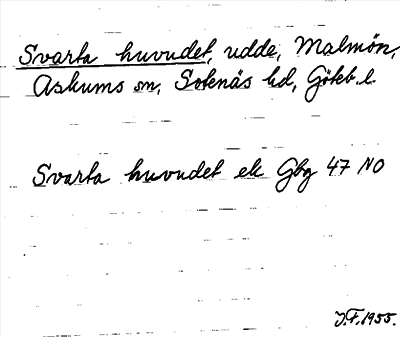 Svarta huvudet, udde, Malmön,
Askums sn, Sotenäs hd, Göteb. l.
Svarta huvudet ek Gbg 47 NO
J.F. 1955.